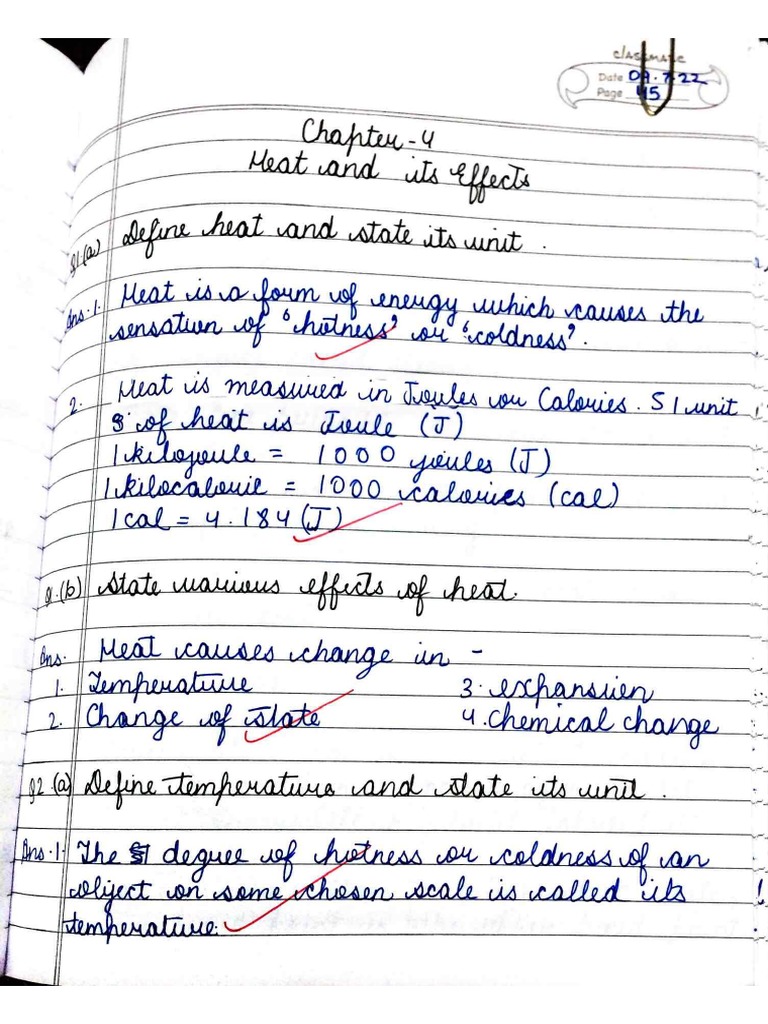 classmate
Date 09.7.22
Page 45
Chapter-4
Heat and its Effects
Q1.(a) Define heat and state its unit.
Ans.1. Heat is a form of energy which causes the
sensation of 'hotness' or 'coldness'.
2. Heat is measured in Joules or Calories. SI unit
of heat is Joule (J)
1 kilojoule = 1000 joules (J)
1 kilocalorie = 1000 calories (cal)
1 cal = 4.184 (J)
Q.(b) State various effects of heat.
Ans. Heat causes change in -
1. Temperature 3. expansion
2. Change of state 4. chemical change
Q2.(a) Define temperature and state its unit.
Ans.1. The degree of hotness or coldness of an
object on some chosen scale is called its
temperature.